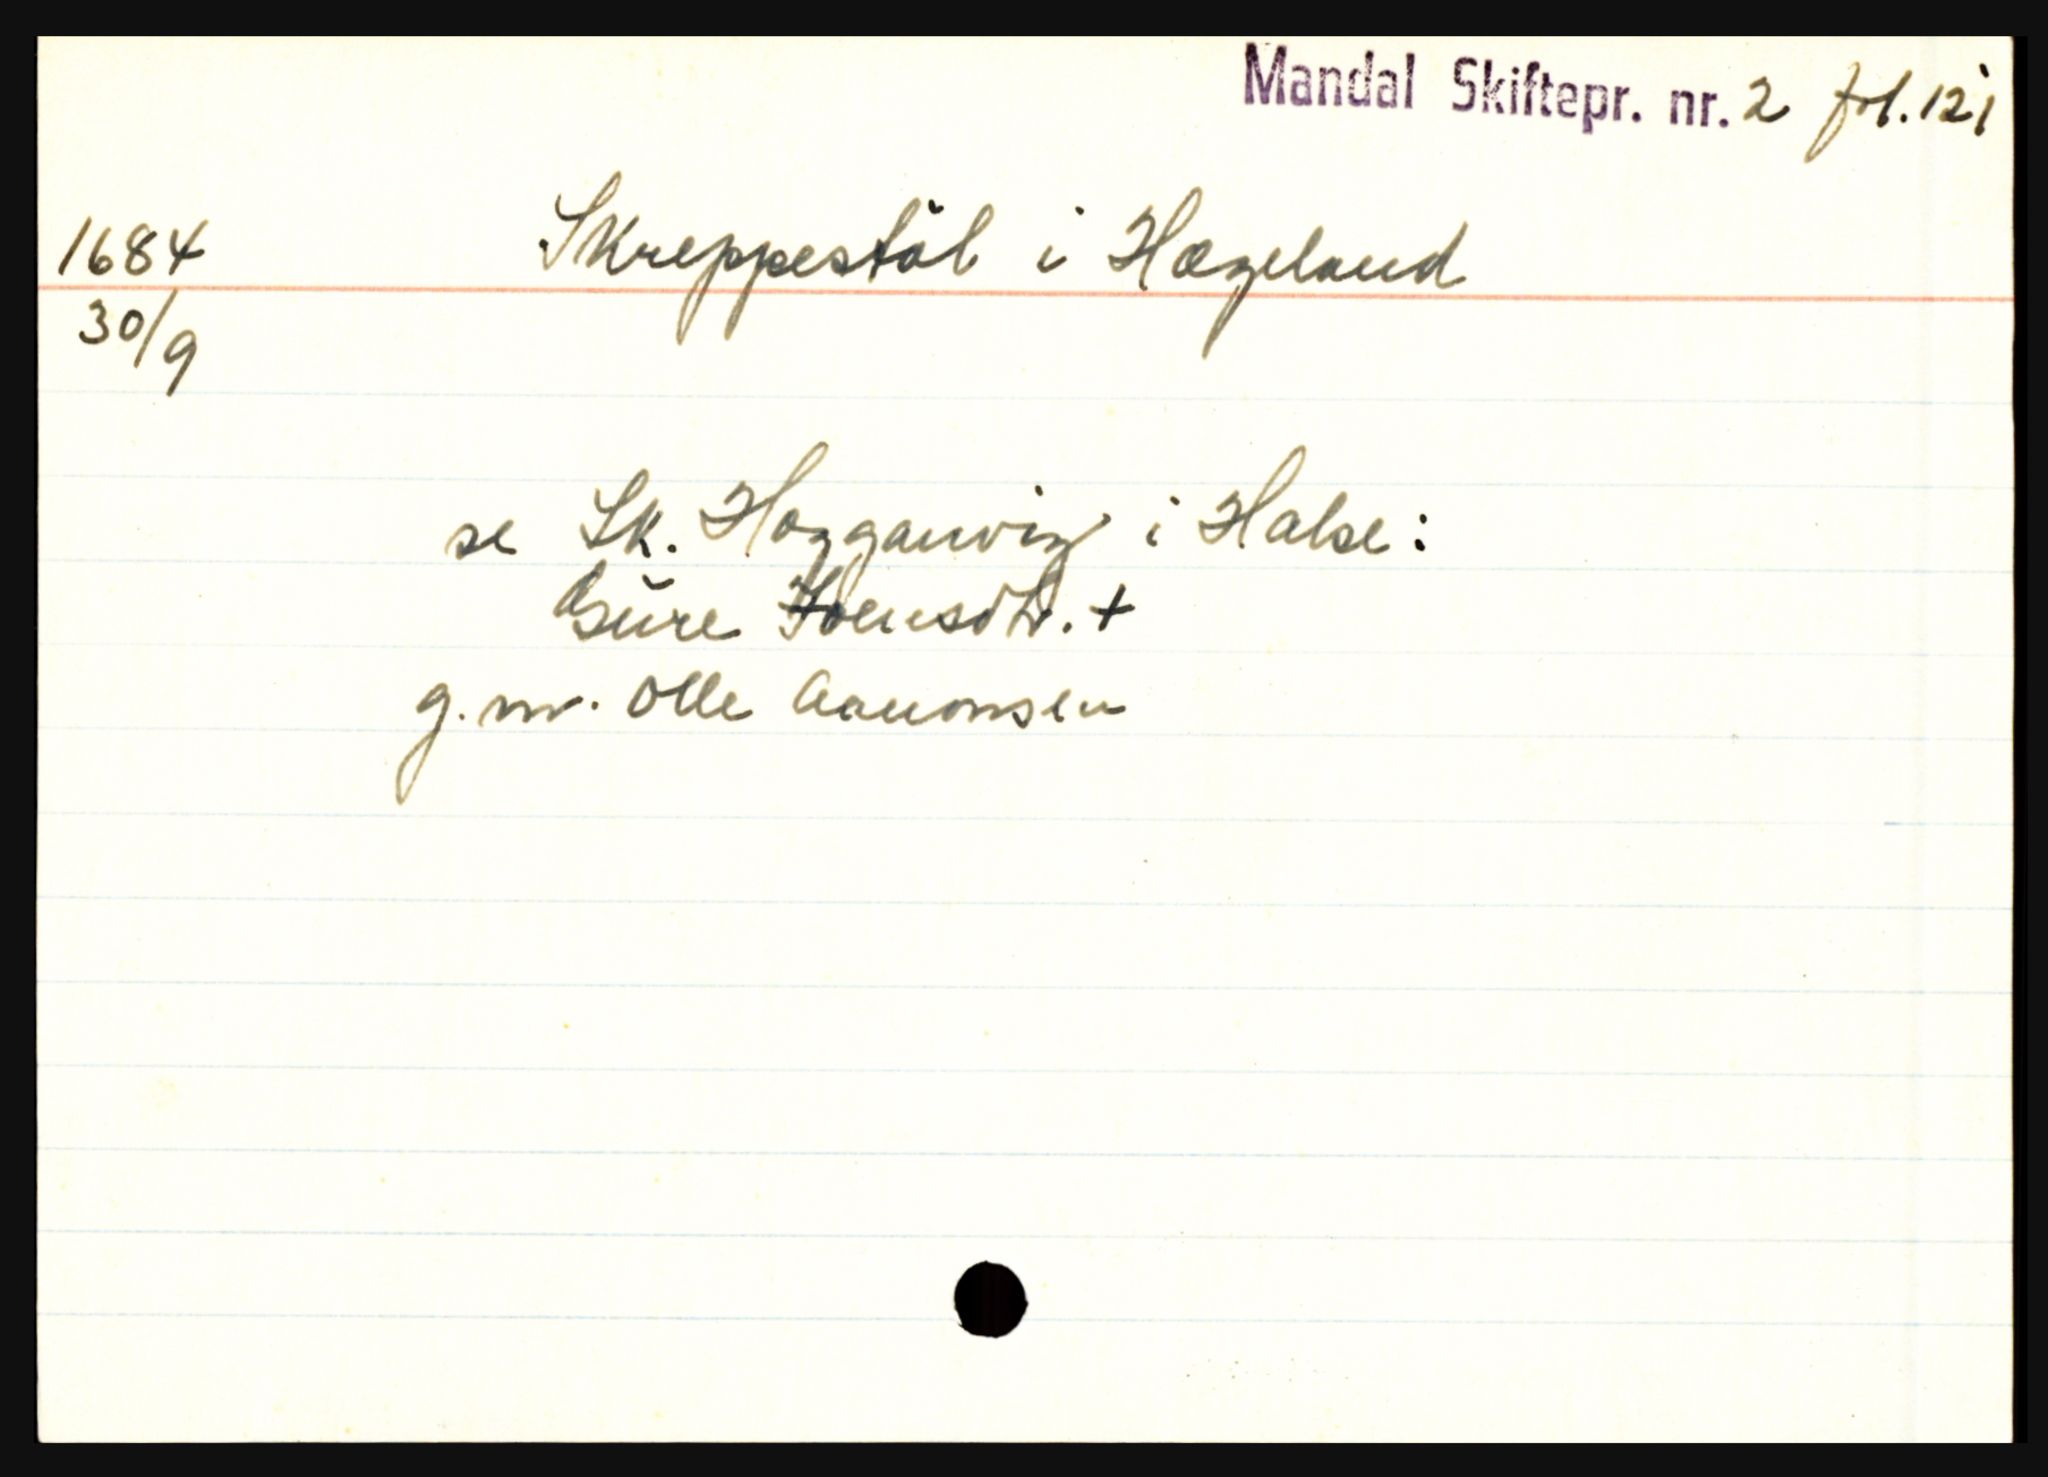 Mandal Skiftepr. nr. 2 fol. 121
1684 Skreppestøl i Hægeland
30/9
se Sk. Hogganvig i Halse:
Gŭre Joensdtr. +
g.m. Olle Aanonsen